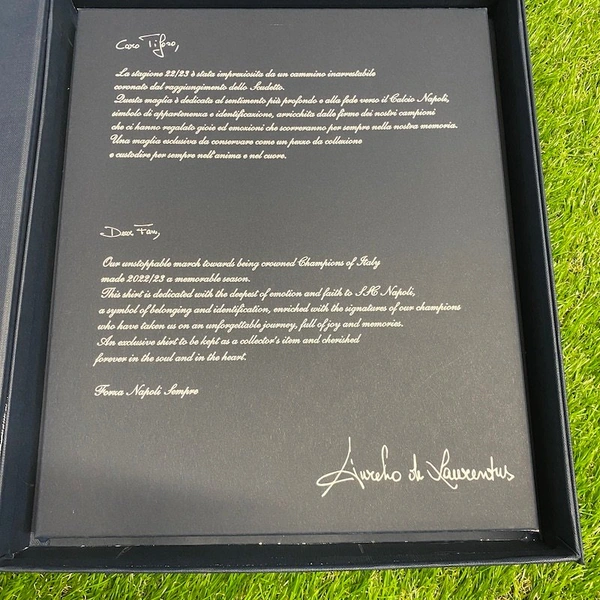 Caro Tifoso,
La stagione 22/23 è stata impreziosita da un cammino inarrestabile
coronato dal raggiungimento dello Scudetto.
Questa maglia è dedicata al sentimento più profondo e alla fede verso il Calcio Napoli,
simbolo di appartenenza e identificazione, arricchita dalle firme dei nostri campioni
che ci hanno regalato gioie ed emozioni che scorreranno per sempre nella nostra memoria.
Una maglia esclusiva da conservare come un pezzo da collezione
e custodire per sempre nell'anima e nel cuore.
Dear Fan,
Our unstoppable march towards being crowned Champions of Italy
made 2022/23 a memorable season.
This shirt is dedicated with the deepest of emotion and faith to SSC Napoli,
a symbol of belonging and identification, enriched with the signatures of our champions
who have taken us on an unforgettable journey, full of joy and memories.
An exclusive shirt to be kept as a collector's item and cherished
forever in the soul and in the heart.
Forza Napoli Sempre
Aurelio de Laurentiis